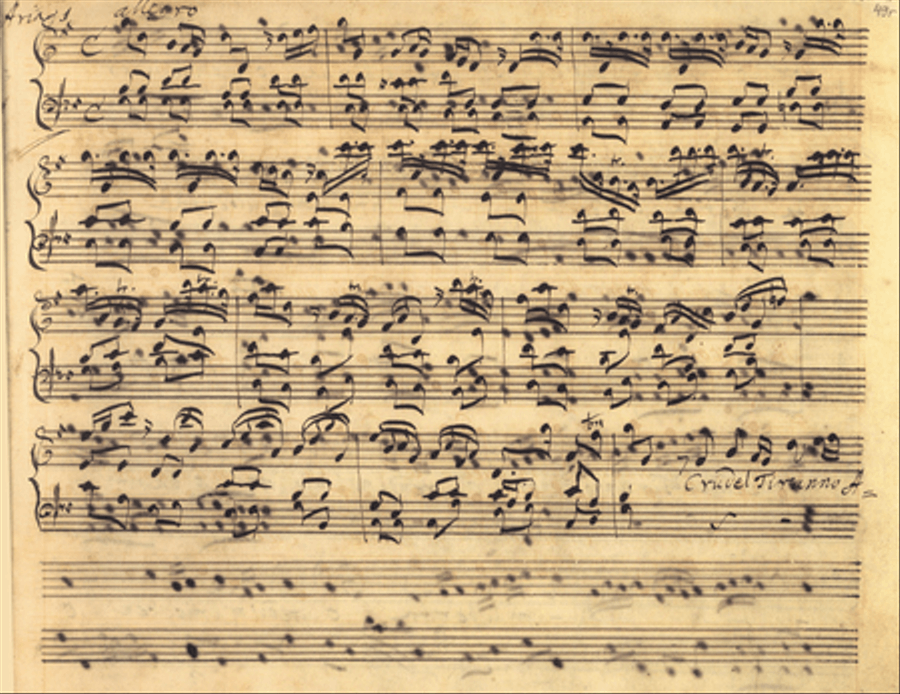 Aria allegro
49r
Crudel Tiranno A